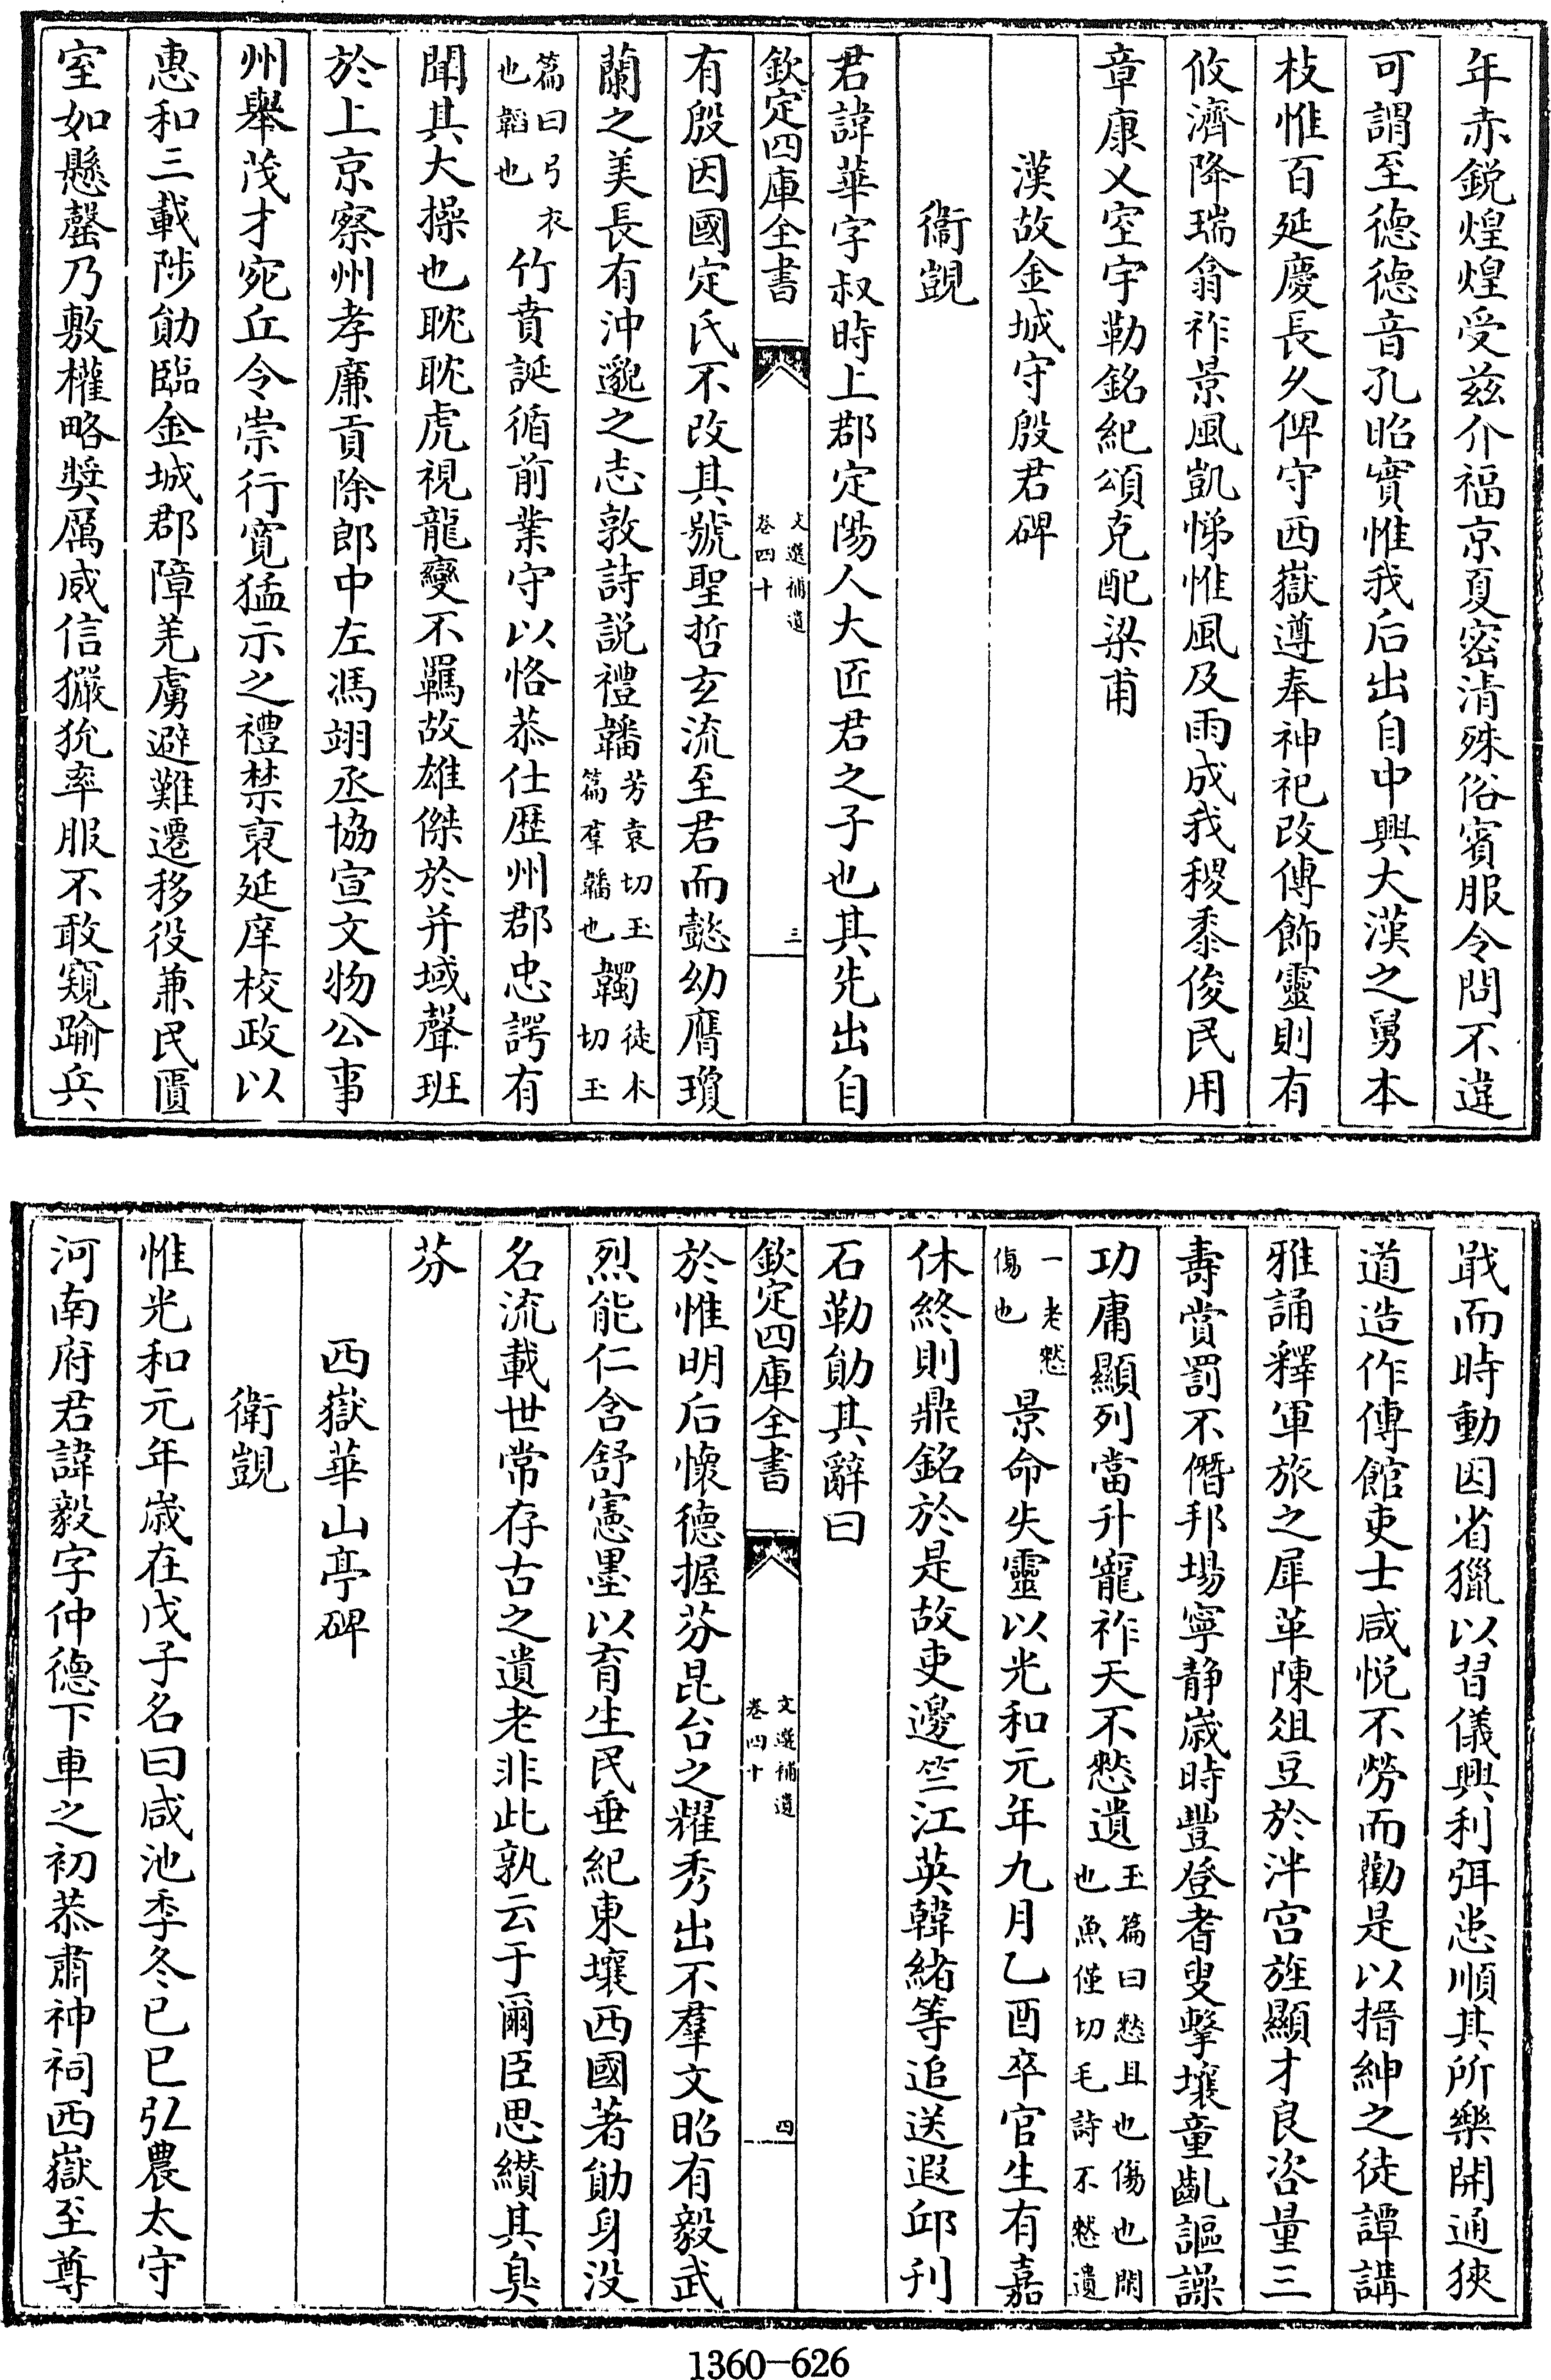 年赤銳煌煌受茲介福京夏密清殊俗賓服令問不違
可謂至德德音孔昭實惟我后出自中興大漢之舅本
枝惟百延慶長久俾守西嶽遵奉神祀改傅飾靈則有
攸濟降瑞翕祚景風凱悌惟風及雨成我稷黍俊民用
章康乂空宇勒銘紀頌克配梁甫
漢故金城守殷君碑
衞覬
君諱華字叔時上郡定陽人大匠君之子也其先出自
欽定四庫全書
文選補遺
卷四十
三
有殷因國定氏不改其號聖哲玄流至君而懿幼膺瓊
蘭之美長有沖邈之志敦詩說禮韣芳袁切玉篇韏韣也韣徒木切玉
篇曰弓衣也韜也竹賁誕循前業守以恪恭仕歷州郡忠諤有
聞其大操也耽耽虎視龍變不羈故雄傑於并域聲班
於上京察州孝廉貢除郎中左馮翊丞協宣文物公事
州舉茂才宛丘令崇行寬猛示之禮禁裒延庠校政以
惠和三載陟勛臨金城郡障羌虜避難遷移役兼民匱
室如懸罄乃敷權略奬厲威信玁狁率服不敢窺踰兵
戢而時動因省獵以習儀興利弭患順其所樂開通狹
道造作傳館吏士咸悅不勞而勸是以搢紳之徒譚講
雅誦釋軍旅之犀革陳俎豆於泮宮旌顯才良咨量三
壽賞罰不僭邦場寧静歲時豐登耆叟擊壤童齓謳謲
功庸顯列當升寵祚天不憖遺玉篇曰憖且也傷也閑也魚僅切毛詩不憖遺
一老憖傷也景命失靈以光和元年九月乙酉卒官生有嘉
休終則鼎銘於是故吏邊竺江英韓緒等追送遐邱刊
石勒勛其辭曰
欽定四庫全書
文選補遺
卷四十
四
於惟明后懷德握芬昆台之耀秀出不羣文昭有毅武
烈能仁含舒憲墨以育生民垂紀東壤西國著勛身没
名流載世常存古之遺老非此孰云于爾臣思纘其臭
芬
西嶽華山亭碑
衛覬
惟光和元年歲在戊子名曰咸池季冬己巳弘農太守
河南府君諱毅字仲德下車之初恭肅神祠西嶽至尊
1360-626